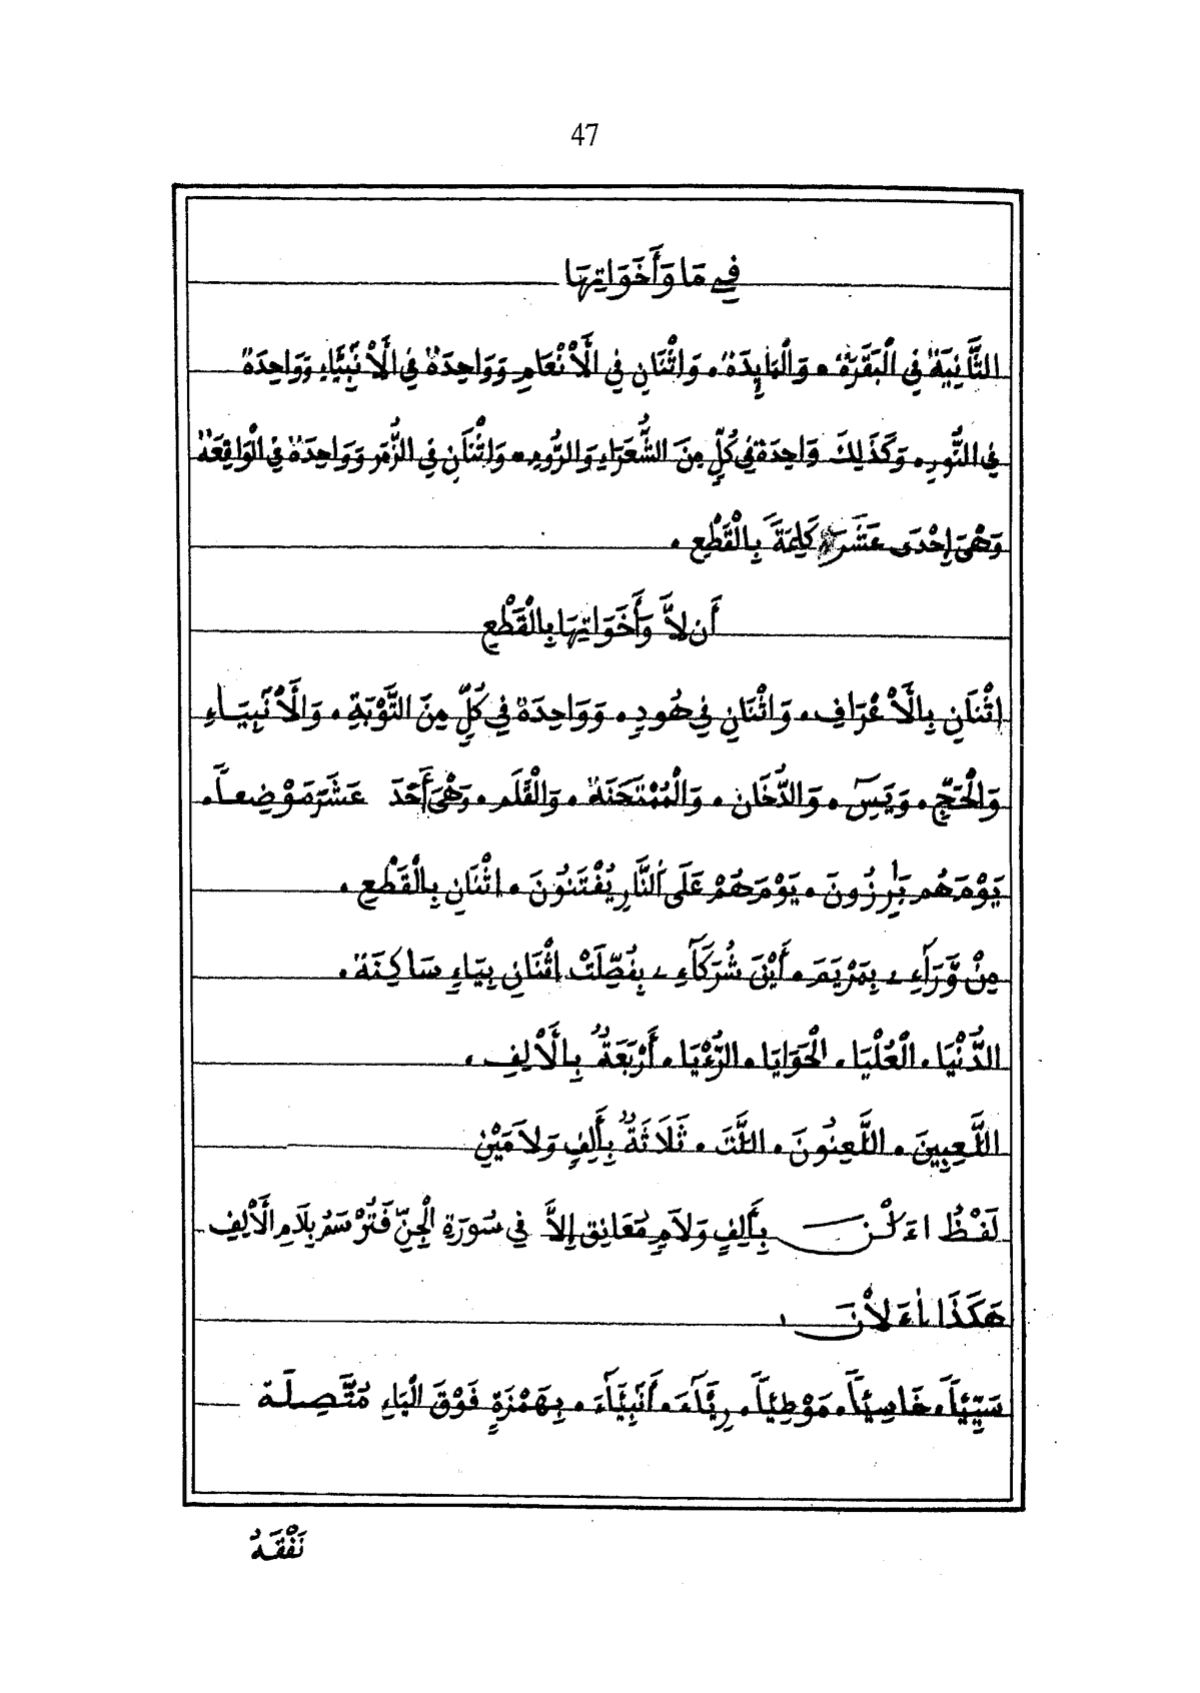 47
فِي مَا وَأَخَوَاتِهَا
الثَّانِيَةُ فِي الْبَقَرَةِ. وَالْمَائِدَةُ. وَاثْنَانِ فِي الْأَنْعَامِ وَوَاحِدَةٌ فِي الْأَنْبِيَاءِ وَوَاحِدَةٌ
فِي النُّورِ. وَكَذَلِكَ وَاحِدَةٌ فِي كُلٍّ مِنَ الشُّعَرَاءِ وَالرُّومِ. وَاثْنَانِ فِي الزُّمَرِ وَوَاحِدَةٌ فِي الْوَاقِعَةِ
وَهْيَ إِحْدَى عَشَرَةَ كَلِمَةً بِالْقَطْعِ.
أَن لاَّ وَأَخَوَاتِهَا بِالْقَطْعِ
اثْنَانِ بِالْأَعْرَافِ. وَاثْنَانِ فِي هُودٍ. وَوَاحِدَةٌ فِي كُلٍّ مِنَ التَّوْبَةِ. وَالْأَنْبِيَاءِ
وَالْحَجِّ. وَيَسٓ. وَالدُّخَانِ. وَالْمُمْتَحَنَةُ. وَالْقَلَمِ. وَهْيَ أَحَدَ عَشَرَ مَوْضِعاً.
يَوْمَ هُم بَٰرِزُونَ. يَوْمَ هُمْ عَلَى النَّارِ يُفْتَنُونَ. اثْنَانِ بِالْقَطْعِ.
مِنْ وَّرَآءِے بِمَرْيَمَ. أَيْنَ شُرَكَآءِے بِفُصِّلَتْ اثْنَانِ بِيَاءٍ سَاكِنَةٌ.
الدُّنْيَا. الْعُلْيَا. الْحَوَايَا. الرُّءْيَا. أَرْبَعَةٌ بِالْأَلِفِ.
اللَّعِبِينَ. اللَّعِنُونَ. اللَّتَ. ثَلَاثَةٌ بِأَلِفٍ وَلاَمَيْنِ
لَفْظُ اءَلْـٰنَ بِأَلِفٍ وَلاَمٍ مُعَانِقٍ إِلاَّ فِي سُورَةِ الْجِنِّ فَتُرْسَمُ بِلَامِ الْأَلِفِ
هَكَذَا اءَلاْنَ
سَيِّئاً. خَاسِئاً. مَوْطِئاً. رِئَآءَ. أَنْبِئَآءَ. بِهَمْزَةٍ فَوْقَ الْيَاءِ مُتَّصِلَة
نَفْقَهُ